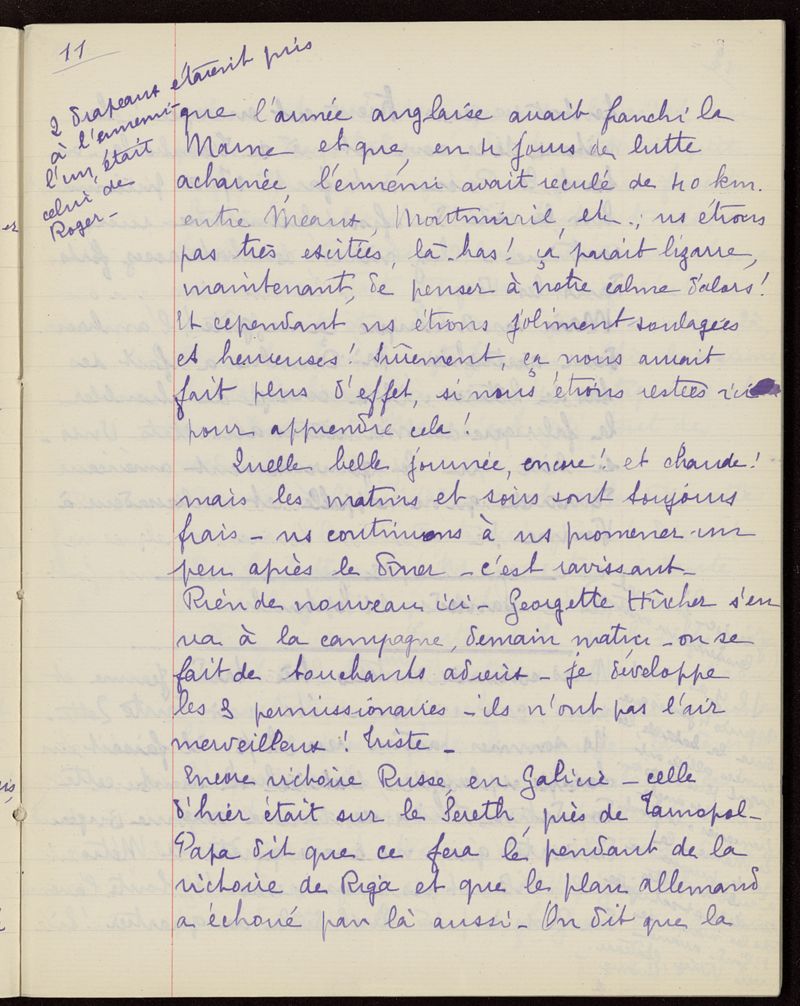 11
2 drapeaux étaient pris
à l'ennemi -
l'un, était
celui de
Roger -
que l'armée anglaise avait franchi la
Marne et que, en 4 jours de lutte
acharnée, l'ennemi avait reculé de 40 km.
entre Meaux, Montmirail, etc.; ns étions
pas très excitées, là-bas! ça paraît bizarre,
maintenant, de penser à notre calme d'alors!
Et cependant ns étions joliment soulagées
et heureuses! sûrement, ça nous aurait
fait plus d'effet, si nous étions restées ici
pour apprendre cela!
Quelle belle journée, encore! et chaude!
mais les matins et soirs sont toujours
frais - ns continuons à ns promener un
peu après le dîner - c'est ravissant -
Rien de nouveau ici - Georgette Hircher s'en
va à la campagne, demain matin - on se
fait de touchants adieux - je développe
les 3 permissionaires - ils n'ont pas l'air
merveilleux! Triste -
Encore victoire Russe, en Galicie - celle
d'hier était sur le Sereth, près de Tarnopol -
Papa dit que ce fera le pendant de la
victoire de Riga et que le plan allemand
a échoué par là aussi - On dit que la